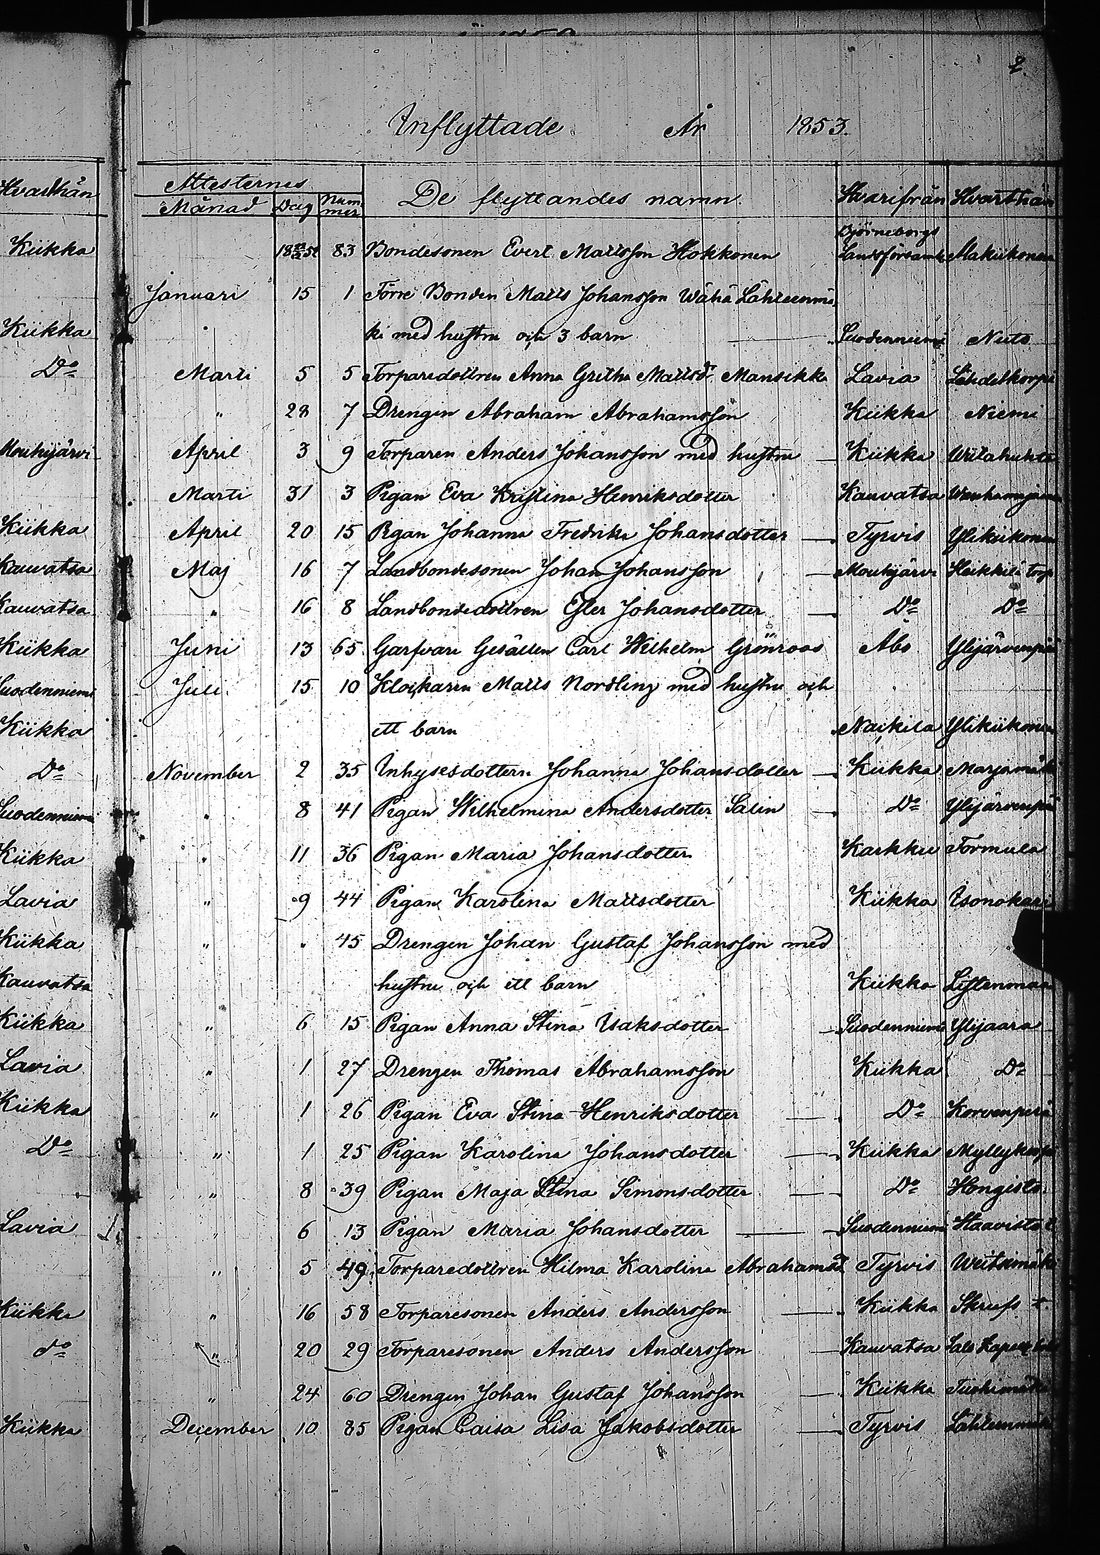 2
Inflyttade År 1853.
Attesternes De flyttandes namn Hvarifrån Hvarthän
Månad Dag Nummer
83 Bondesonen Evert Mattsson Hokkonen Björneborgs Landsförsaml Makukonen
Januari 15 1 Förre Bonden Matts Johansson Wähä Lähteenmä
ki med hustru och 3 barn Suodenniemi
Marti 5 5 Torparedottren Anna Gretha Mattsd. Mansikka Lavia Lähdekorpi
" 28 7 Drengen Abraham Abrahamsson Kiikka Niemi
April 3 9 Torparen Anders Johansson med hustru Kiikka
Marti 31 3 Pigan Eva Kristina Henriksdotter Kauvatsa
April 20 15 Pigan Johanna Fredrika Johansdotter Tyrvis Ylikiikonen
Maj 16 7 Landbondesonen Johan Johansson Mouhijärvi Heikkilä torp
" 16 8 Landbondedottren Ester Johansdotter Do Do
Juni 13 65 Garfvare Gesällen Carl Wilhelm Grönroos Åbo Ylijärvenpää
Juli 15 10 Klockaren Matts Nordling med hustru och
ett barn Nakkila Ylikiikonen
November 2 35 Inhysesdottern Johanna Johansdotter Kiikka Marjamäki
" 8 41 Pigan Wilhelmina Andersdotter Salin Do Ylijärvenpää
" 11 36 Pigan Maria Johansdotter Karkku Formula
" 9 44 Pigan Karolina Mattsdotter Kiikka
" " 45 Drengen Johan Gustaf Johansson med
hustru och ett barn Kiikka Listenmaa
" 6 15 Pigan Anna Stina Isaksdotter Suodenniemi Ylijaara
" 1 27 Drengen Thomas Abrahamsson Kiikka Do
" 1 26 Pigan Eva Stina Henriksdotter Do Korvenperä
" 1 25 Pigan Karolina Johansdotter Kiikka
" 8 39 Pigan Maja Stina Simonsdotter Do Hongisto
" 6 13 Pigan Maria Johansdotter Suodenniemi Haavisto
" 5 49 Torparedottren Hilma Karolina Abrahamsd Tyrvis
" 16 58 Torparesonen Anders Andersson Kiikka
" 20 29 Torparesonen Anders Andersson Kauvatsa
" 24 60 Drengen Johan Gustaf Johansson Kiikka
December 10 85 Pigan Caisa Lisa Jakobsdotter Tyrvis Lähteenmäki
Hvarthän
Kiikka
Kiikka
Do
Mouhijärvi
Kiikka
Kauvatsa
Kauvatsa
Kiikka
Suodenniemi
Kiikka
Do
Suodenniemi
Kiikka
Lavia
Kiikka
Kauvatsa
Kiikka
Lavia
Kiikka
Do
Lavia
Kiikka
do
Kiikka